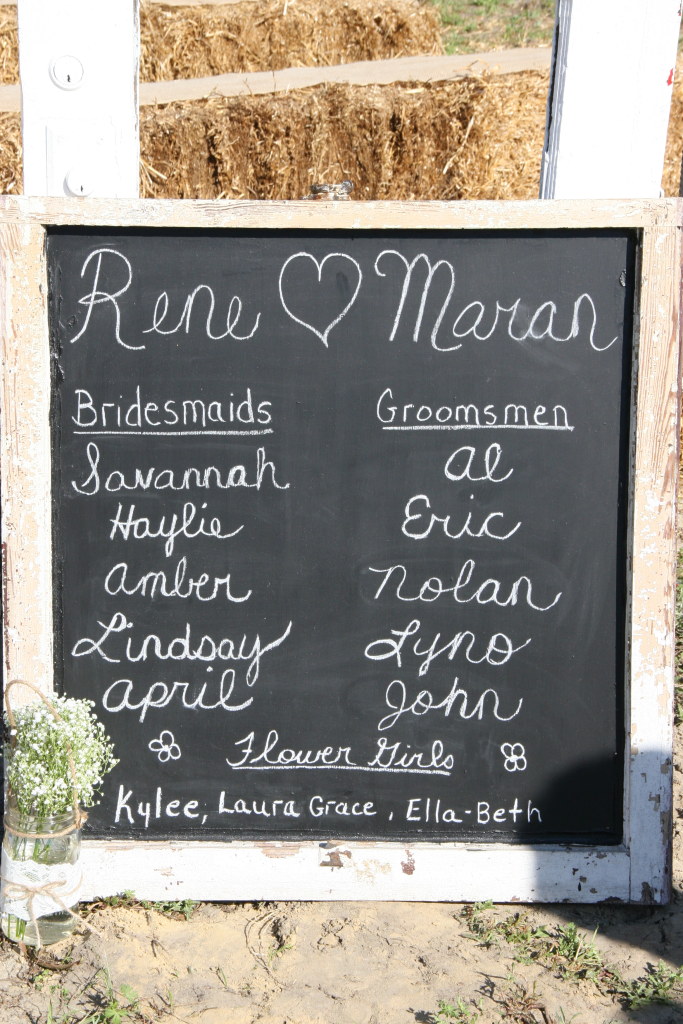 Rene ♡ Maran
Bridesmaids
Savannah
Haylie
Amber
Lindsay
April
Groomsmen
Al
Eric
Nolan
Lyno
John
Flower Girls
Kylee, Laura Grace, Ella-Beth